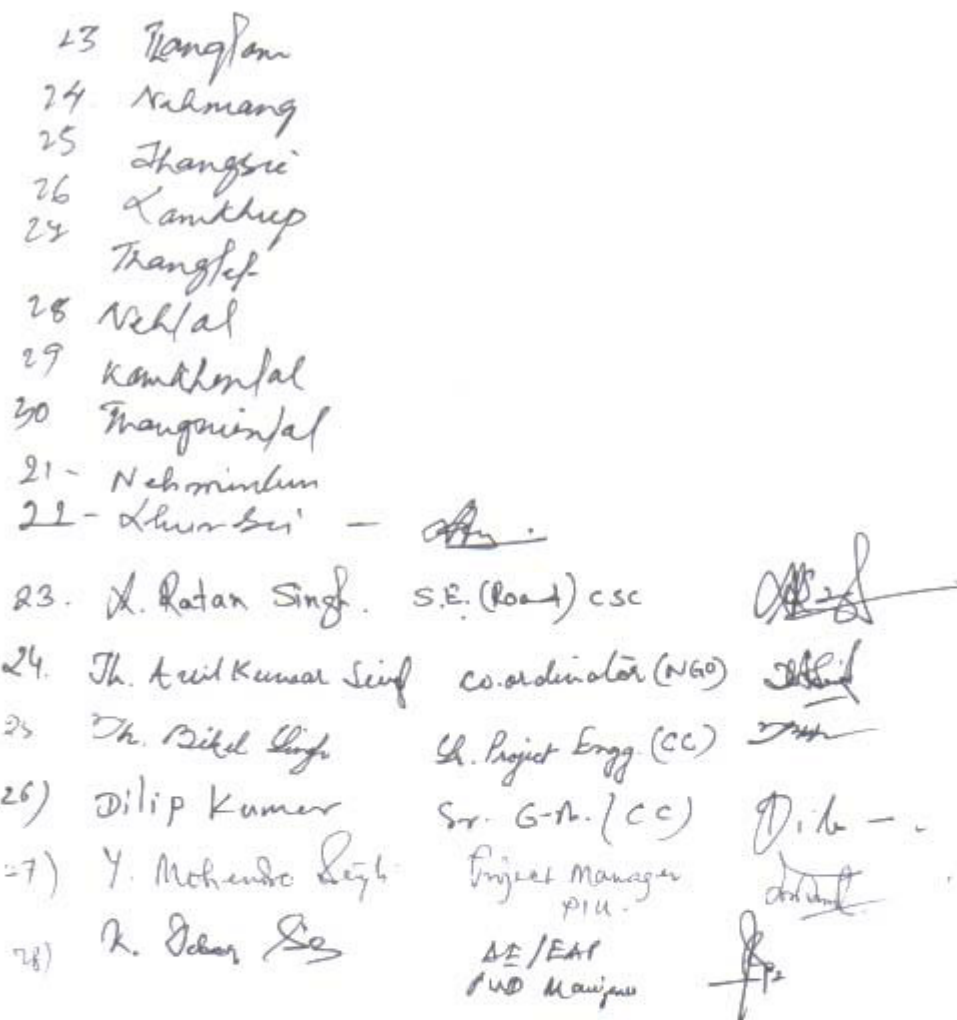 23 Thanglam
24 Nehmang
25 Thangsei
26 Lamkhup
27 Thanglet
28 Nehlal
29 Kamkhenlal
30 Thangminlal
21 - Nehminlun
22 - Lhunsei -
23. L. Ratan Singh. S.E. (Road) CSC
24. Th. Anil Kumar Singh Co.ordinator (NGO)
25 Th. Bikel Singh Sr. Project Engg. (CC)
26) Dilip Kumar Sr. G.M. (CC)
27) Y. Mohendro Singh Project Manager
PIU.
28) K. AE/EAP
PWD Manipur